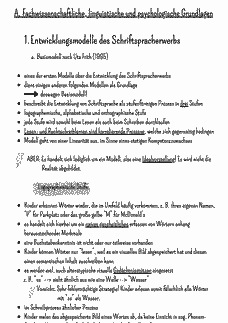 A. Fachwissenschaftliche, linguistische und psychologische Grundlagen
1. Entwicklungsmodelle des Schriftspracherwerbs
a. Basismodell nach Uta Frith (1985)
• eines der ersten Modelle über die Entwicklung des Schriftspracherwerbs
• dient einigen anderen folgenden Modellen als Grundlage
→ deswegen Basismodell
• beschreibt die Entwicklung von Schriftsprache als stufenförmigen Prozess in drei Stufen
• logographemische, alphabetische und orthographische Stufe
• jede Stufe wird sowohl beim Lesen als auch beim Schreiben durchlaufen
• Lesen- und Rechtschreiblernen sind korrelierende Prozesse, welche sich gegenseitig bedingen
• Modell geht von einer Linearität aus, im Sinne eines stetigen Kompetenzzuwachses
ABER: Es handelt sich lediglich um ein Modell, also eine Idealvorstellung! Es wird nicht die
Realität abgebildet.
• Kinder erkennen Wörter wieder, die im Umfeld häufig vorkommen, z. B. ihren eigenen Namen,
"P" für Parkplatz oder das große gelbe "M" für McDonald's
• es handelt sich hierbei um ein ganzheitliches erfassen von Wörtern anhang
herausstechender Merkmale
• eine Buchstabenkenntnis ist nicht oder nur teilweise vorhanden
• Kinder können Wörter nur "lesen", weil es ein visuelles Bild abgespeichert hat und diesem
einen semantischen Inhalt zuschreiben kann
• es werden evtl. auch charakteristische visuelle Gedächtnisstützen eingesetzt
z. B. "w" sieht ähnlich aus wie eine Welle → "Wasser"
Vorsicht: Sehr fehleranfällige Strategie! Kinder erlesen somit fälschlich alle Wörter
mit "w" als Wasser.
• im Schreibprozess ähnlicher Prozess
• Kinder malen das abgespeicherte Bild eines Wortes ab, da keine Einsicht in sog. Phonem-